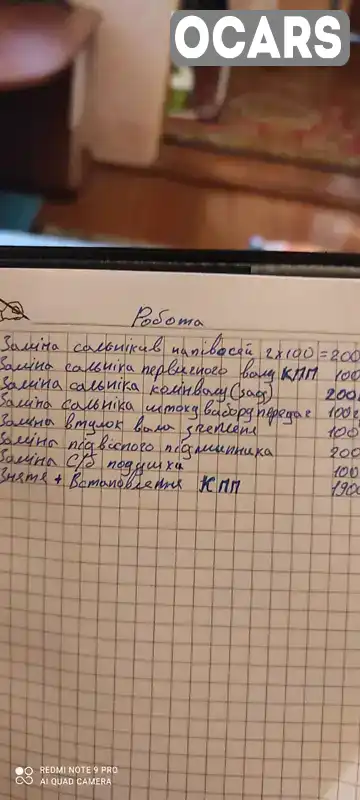 OCARS
Робота
Заміна сальників напівосей 2x100 = 200
Заміна сальніка первичного валу КПП 100
Заміна сальніка колінвалу (зад) 200
Заміна сальніка штока вибору передач 100
Заміна втулок вала зчеплення 100
Заміна підвісного підшипника 200
Заміна С/б подушки 100
Зняття + Встановлення КПП 1900
REDMI NOTE 9 PRO
AI QUAD CAMERA